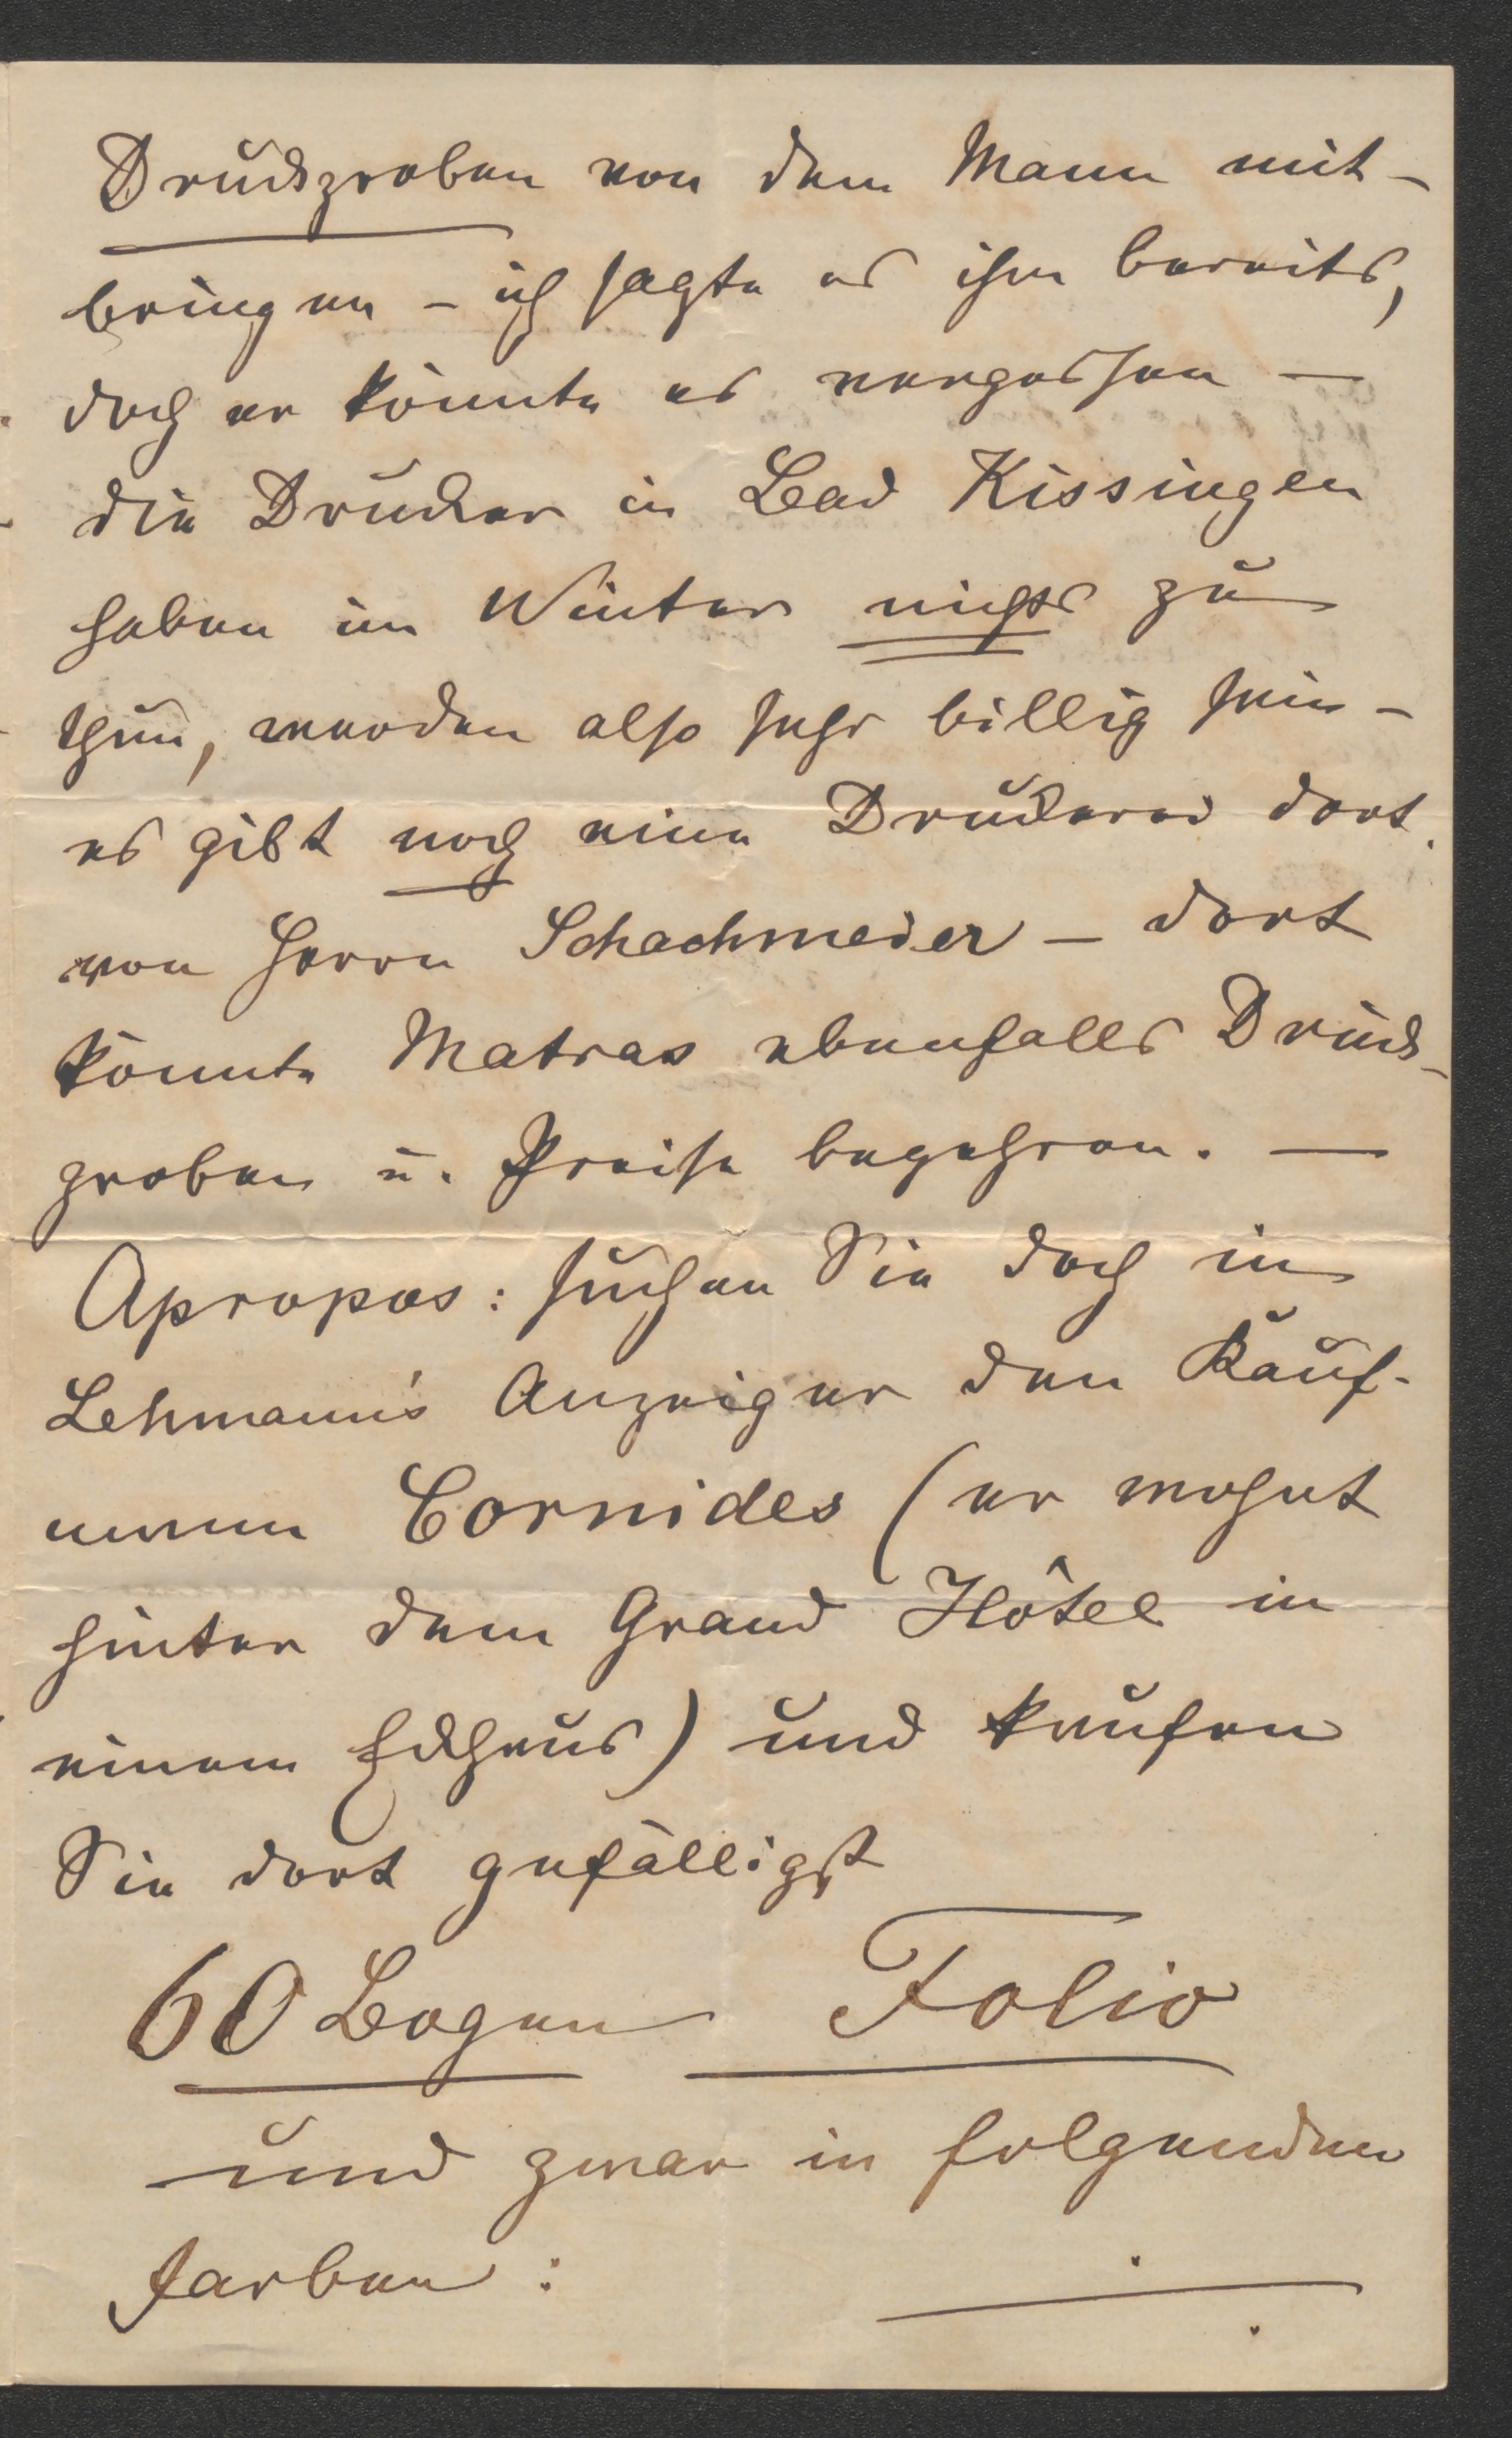 Druckproben von dem Mann mit-
bringen – ich sagte es ihm bereits,
doch er könnte es vergessen –
die Drucker in Bad Kissingen
haben im Winter nichts zu
thun, werden also sehr billig sein –
es gibt noch eine Druckerei dort.
von Herrn Schachmeier – dort
könnte Matras ebenfalls Druck-
proben u. Preise begehren. —
Apropos: suchen Sie doch in
Lehmann's Anzeiger den Kauf-
mann Cornides (er wohnt
hinter dem Grand Hôtel in
einem Eckhaus) und kaufen
Sie dort gefälligst
60 Bogen Folio
und zwar in folgenden
Farben: